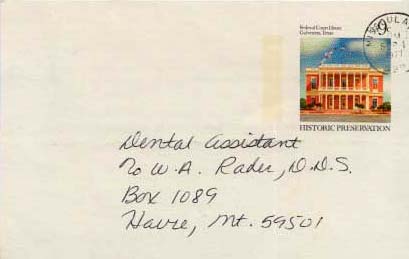 Federal Court House
Galveston, Texas
MISSOULA
9
HISTORIC PRESERVATION
Dental Assistant
℅ W.A. Rader, D.D.S.
Box 1089
Havre, Mt. 59501